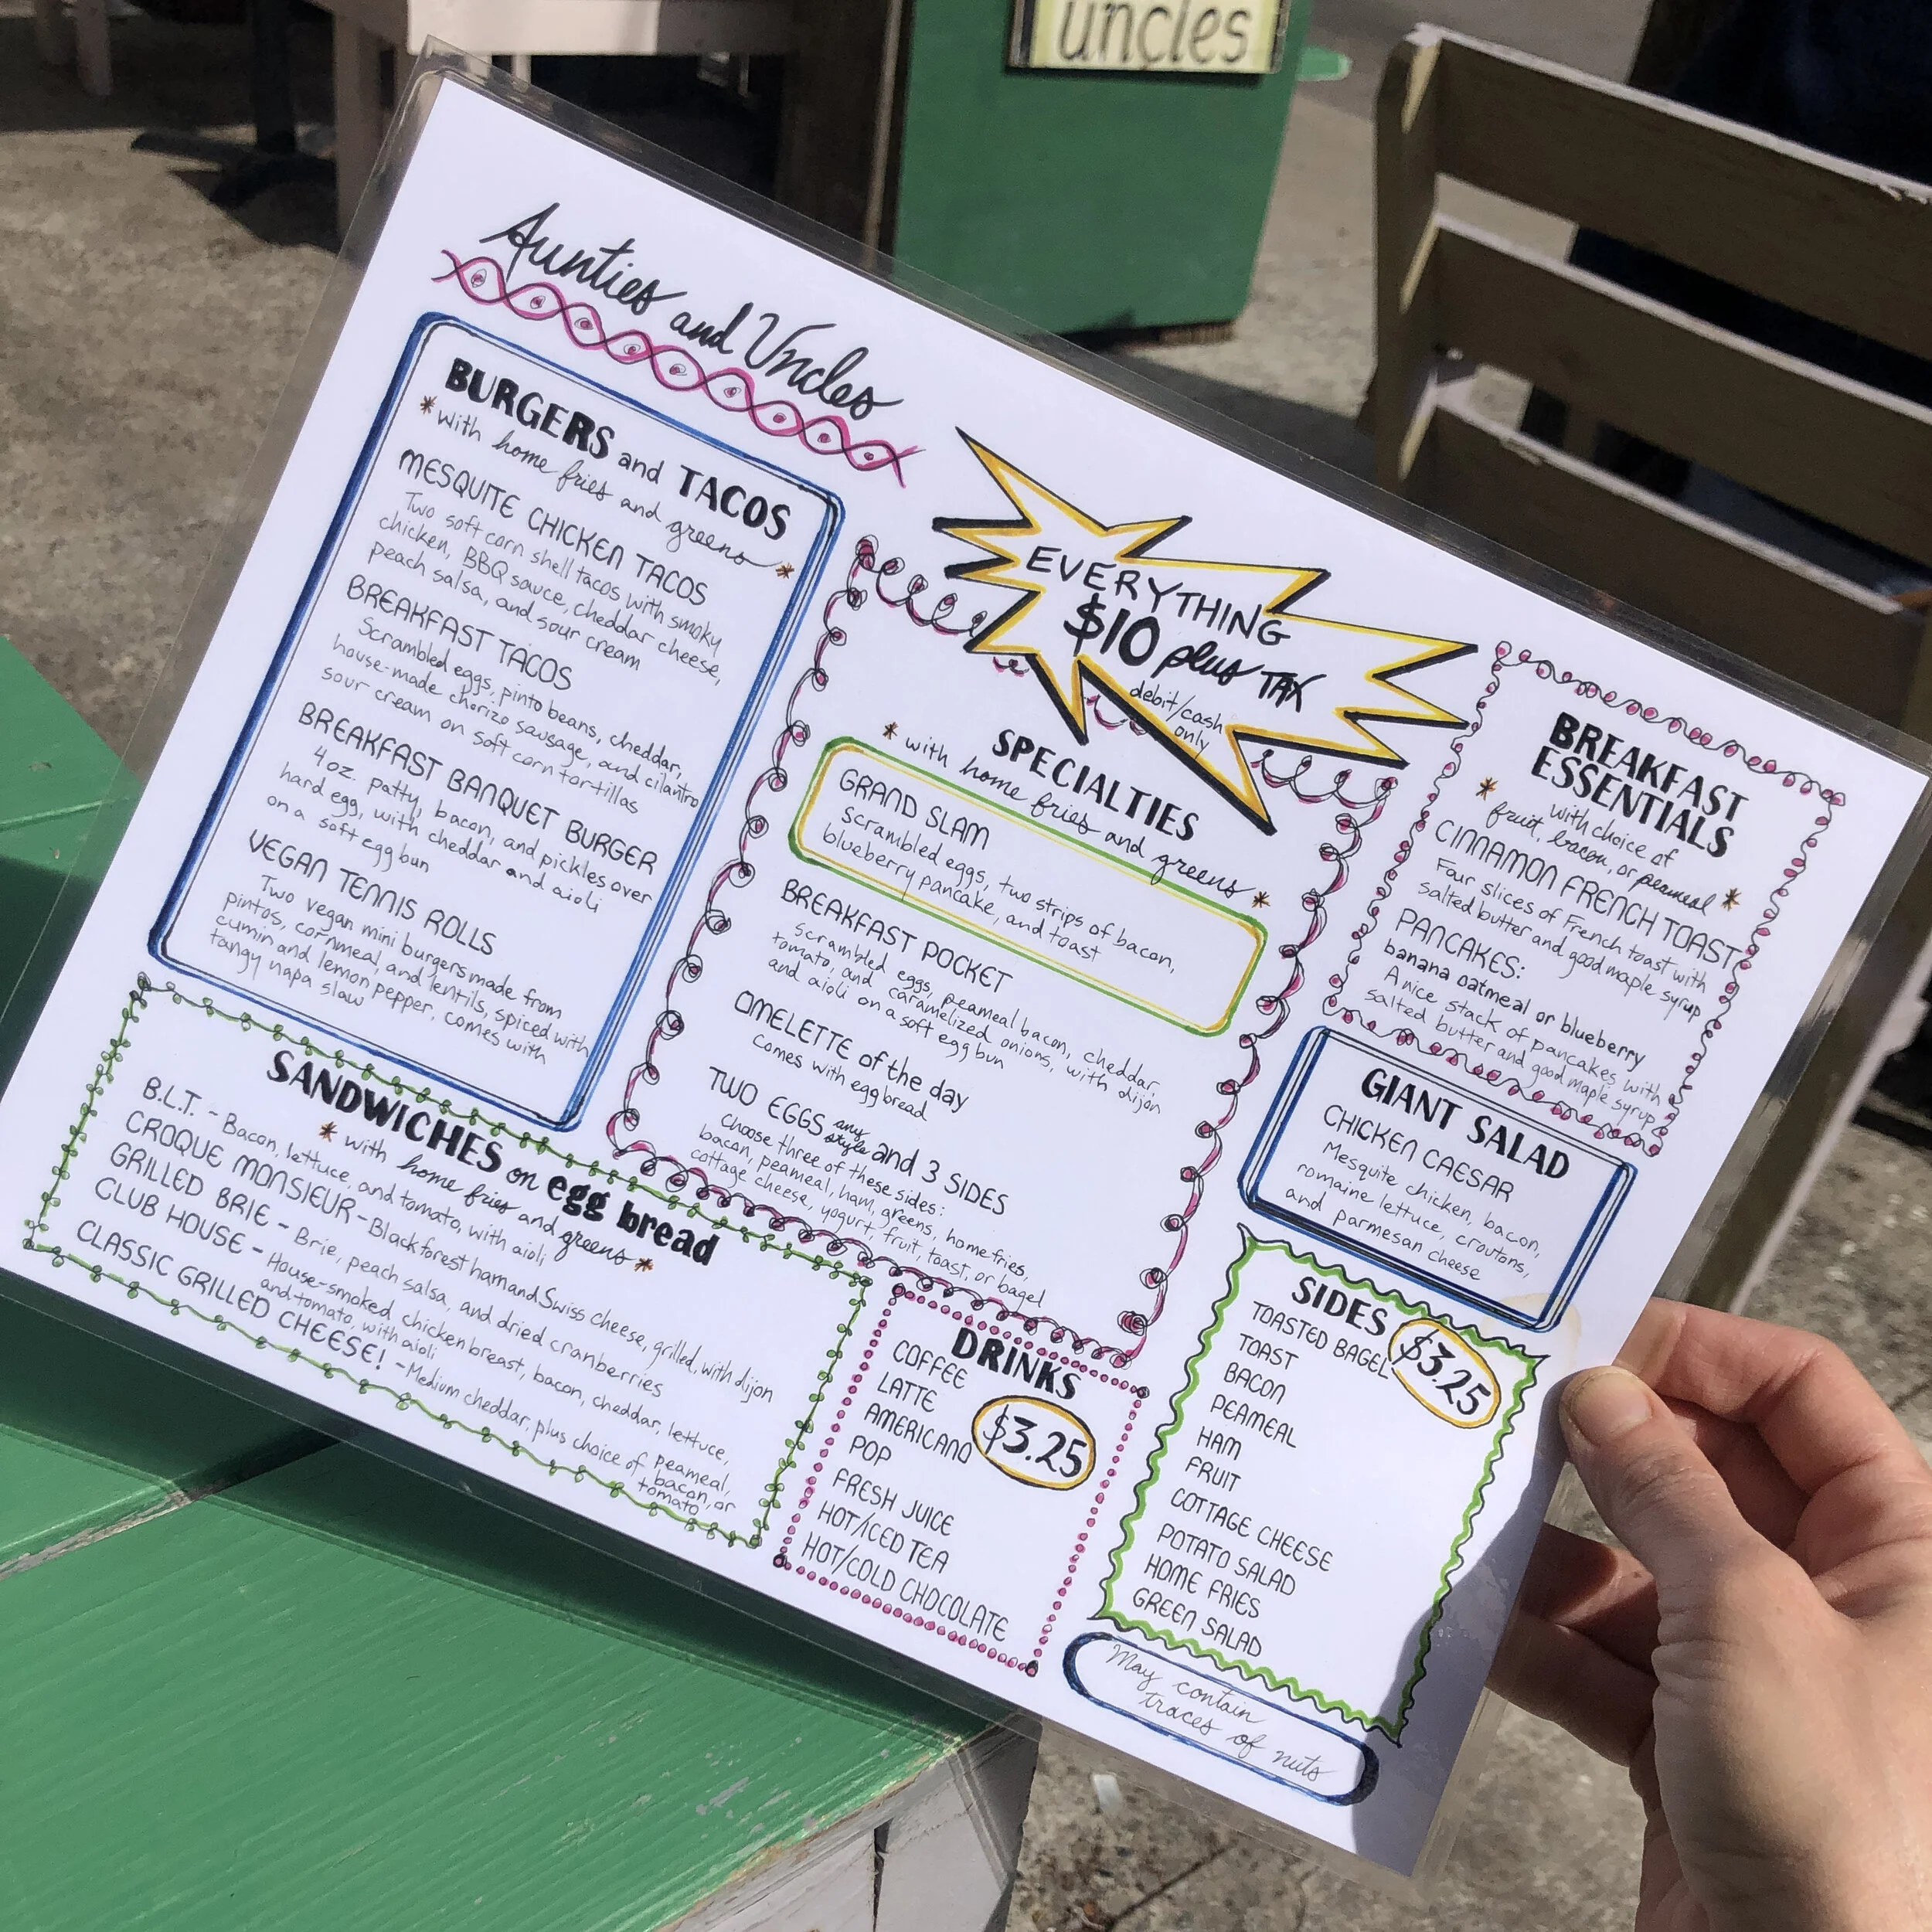 uncles
Aunties and Uncles
BURGERS and TACOS
*with home fries and greens*
MESQUITE CHICKEN TACOS
Two soft corn shell tacos with smoky
chicken, BBQ sauce, cheddar cheese,
peach salsa, and sour cream
BREAKFAST TACOS
Scrambled eggs, pinto beans, cheddar,
house-made chorizo sausage, and cilantro
sour cream on soft corn tortillas
BREAKFAST BANQUET BURGER
4 oz. patty, bacon, and pickles over
hard egg, with cheddar and aioli
on a soft egg bun
VEGAN TENNIS ROLLS
Two vegan mini burgers made from
pintos, cornmeal, and lentils, spiced with
cumin and lemon pepper, comes with
tangy napa slaw
EVERYTHING
$10 plus TAX
debit/cash
only
SPECIALTIES
*with home fries and greens*
GRAND SLAM
Scrambled eggs, two strips of bacon,
blueberry pancake, and toast
BREAKFAST POCKET
Scrambled eggs, peameal bacon, cheddar,
tomato, and caramelized onions, with dijon
and aioli on a soft egg bun
OMELETTE of the day
Comes with egg bread
TWO EGGS any style and 3 SIDES
Choose three of these sides:
bacon, peameal, ham, greens, home fries,
cottage cheese, yogurt, fruit, toast, or bagel
BREAKFAST
ESSENTIALS
*with choice of
fruit, bacon, or peameal*
CINNAMON FRENCH TOAST
Four slices of French toast with
salted butter and good maple syrup
PANCAKES:
banana oatmeal or blueberry
A nice stack of pancakes with
salted butter and good maple syrup
GIANT SALAD
CHICKEN CAESAR
Mesquite chicken, bacon,
romaine lettuce, croutons,
and parmesan cheese
SANDWICHES on egg bread
*with home fries and greens*
B.L.T. - Bacon, lettuce, and tomato, with aioli
CROQUE MONSIEUR - Black forest ham and Swiss cheese, grilled, with dijon
GRILLED BRIE - Brie, peach salsa, and dried cranberries
CLUB HOUSE - House-smoked chicken breast, bacon, cheddar, lettuce,
and tomato, with aioli
CLASSIC GRILLED CHEESE! - Medium cheddar, plus choice of peameal,
bacon, or
tomato
DRINKS
$3.25
COFFEE
LATTE
AMERICANO
POP
FRESH JUICE
HOT/ICED TEA
HOT/COLD CHOCOLATE
SIDES
$3.25
TOASTED BAGEL
TOAST
BACON
PEAMEAL
HAM
FRUIT
COTTAGE CHEESE
POTATO SALAD
HOME FRIES
GREEN SALAD
May contain
traces of nuts